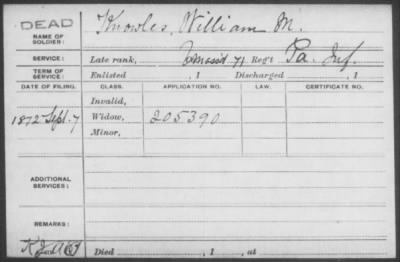 DEAD
NAME OF SOLDIER: Knowles, William M.
SERVICE: Late rank, 71 Reg't Pa. Inf.
TERM OF SERVICE: Enlisted , 1 Discharged , 1
DATE OF FILING. CLASS. APPLICATION NO. LAW. CERTIFICATE NO.
Invalid,
1872 Sept. 7 Widow, 205390
Minor,
ADDITIONAL SERVICES:
REMARKS:
Died , 1 , at